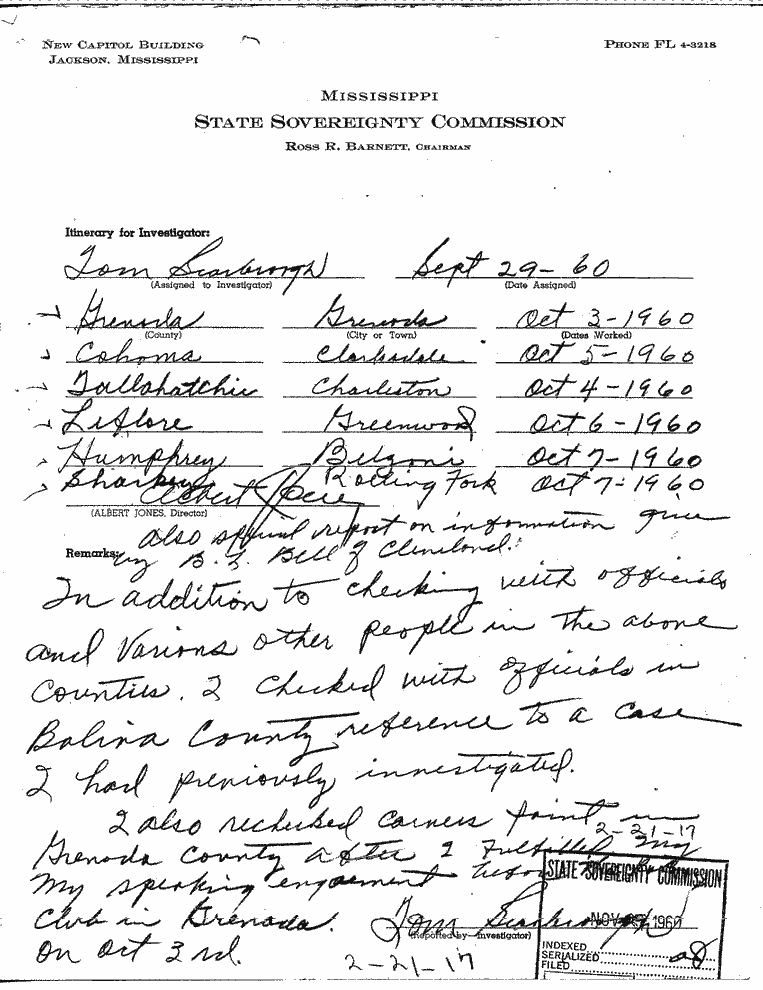 NEW CAPITOL BUILDING
JACKSON, MISSISSIPPI
PHONE FL 4-3218
MISSISSIPPI
STATE SOVEREIGNTY COMMISSION
ROSS R. BARNETT, CHAIRMAN
Itinerary for Investigator:
Tom Scarbrough Sept 29-60
(Assigned to Investigator) (Date Assigned)
Grenada Grenada Oct 3-1960
(County) (City or Town) (Dates Worked)
Cohoma Clarksdale Oct 5-1960
Tallahatchie Charleston Oct 4-1960
Leflore Greenwood Oct 6-1960
Humphrey Belzoni Oct 7-1960
Sharkey Rolling Fork Oct 7-1960
Albert Jones
(ALBERT JONES, Director)
also special report on information given
Remarks: by B. L. Bell of Cleveland.
In addition to checking with officials
and Various other people in the above
Counties. I checked with officials in
Bolivar County reference to a case
I had previously investigated.
I also rechecked corners point in
2-21-17
Grenada County after I fulfilled my
my speaking engagement
Club in Grenada.
on Oct 3rd.
Tom Scarbrough
(Reported by Investigator)
2-21-17
STATE SOVEREIGNTY COMMISSION
NOV 1960
INDEXED
SERIALIZED
FILED